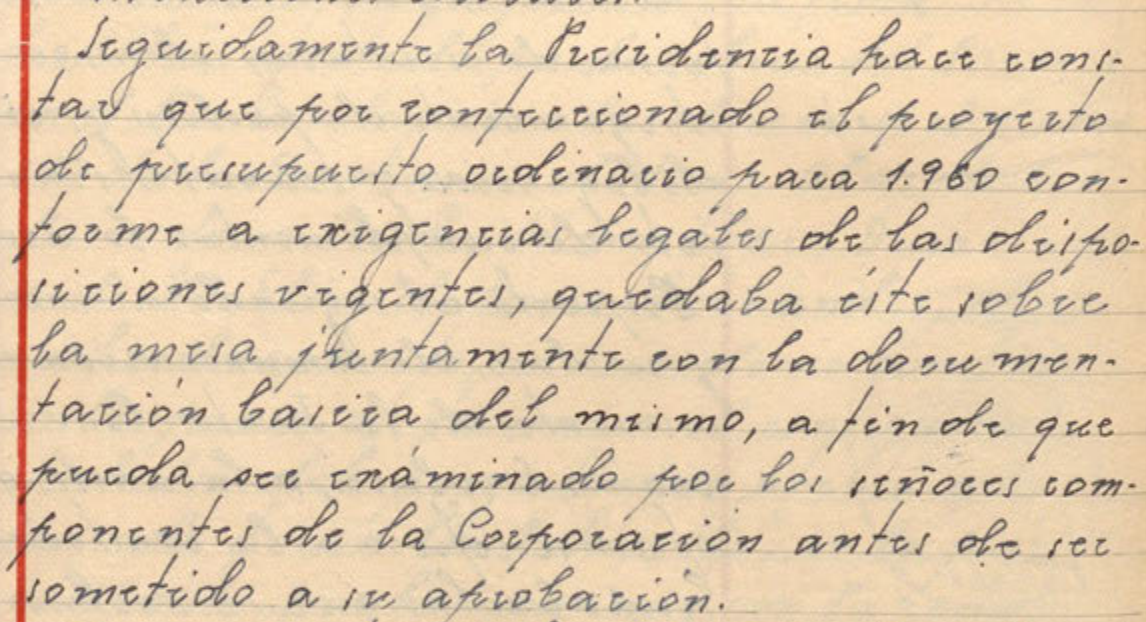 Seguidamente la Presidencia hace cons-
tar que por confeccionado el proyecto
de presupuesto ordinario para 1.960 con-
forme a exigencias legales de las dispo-
siciones vigentes, quedaba éste sobre
la mesa juntamente con la documen-
tación basica del mismo, a fin de que
pueda ser exáminado por los señores com-
ponentes de la Corporación antes de ser
sometido a su aprobación.